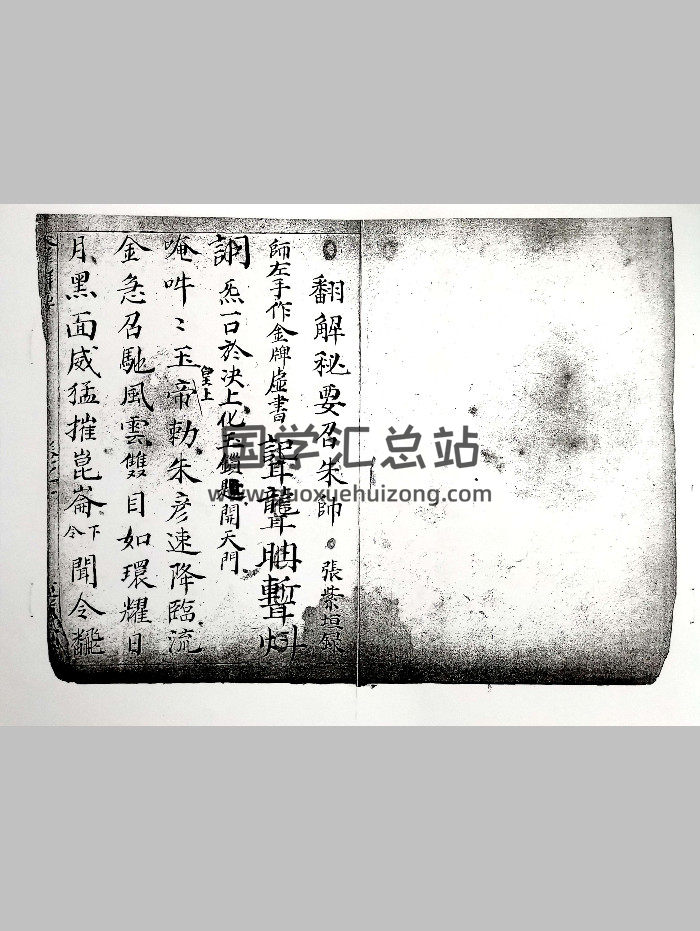 翻解秘要召朱師 張紫垣錄
師左手作金牌虛書
炁一口於決上化玉鎖 開天門
唵吽〻玉帝勅朱彦速降臨流
皇上
金急召馳風雲雙目如環耀日
月黑面威猛摧崑崙下令聞令
国学汇总站
www.guoxuehuizong.com